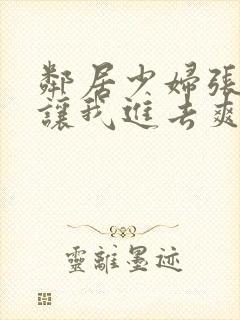 鄰居少婦張
讓我進去爽
靈離墨迹